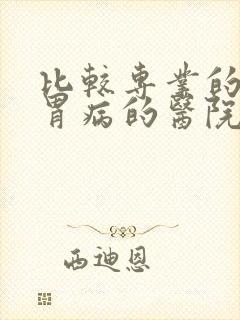 比較専業的
胃病的醫院
西迪恩